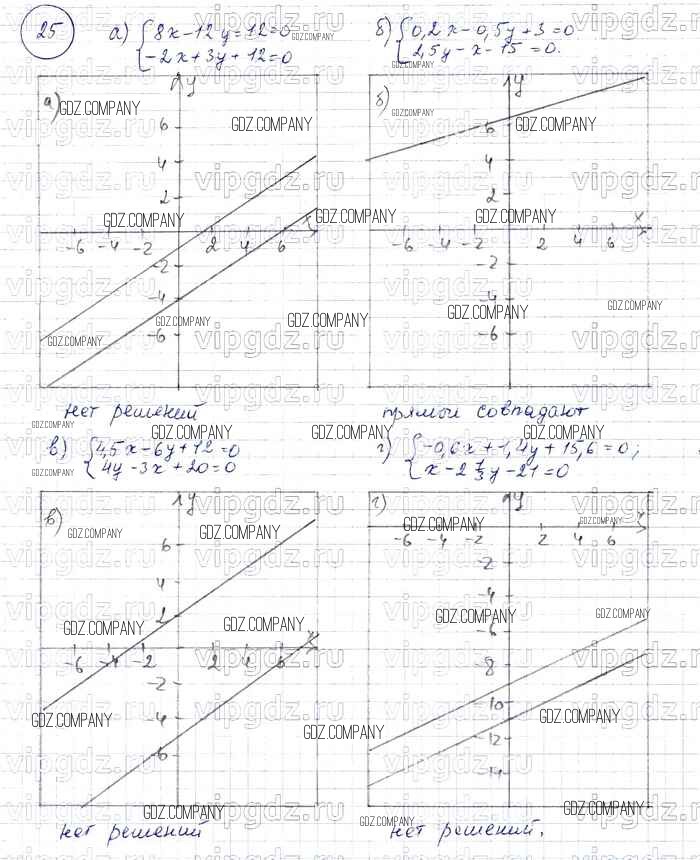 25
а) { 8x-12y=12=0
{ -2x+3y+12=0
б) { 0,2x-0,5y+3=0
{ 2,5y-x-15=0.
а)
y
6
4
2
x
-6 -4 -2 2 4 6
-2
-4
-6
нет решений
б)
y
6
4
2
x
-6 -4 -2 2 4 6
-2
-4
-6
прямой совпадают
в) { 4,5x-6y+12=0
{ 4y-3x+20=0
г) { -0,6x+1,4y+15,6=0;
{ x-2 1/3y-21=0
в)
y
6
4
2
x
-6 -4 -2 2 4 6
-2
-4
-6
нет решений
г)
y
x
-6 -4 -2 2 4 6
-2
-4
-6
-8
-10
-12
-14
нет решений.
GDZ.COMPANY
vipgdz.ru